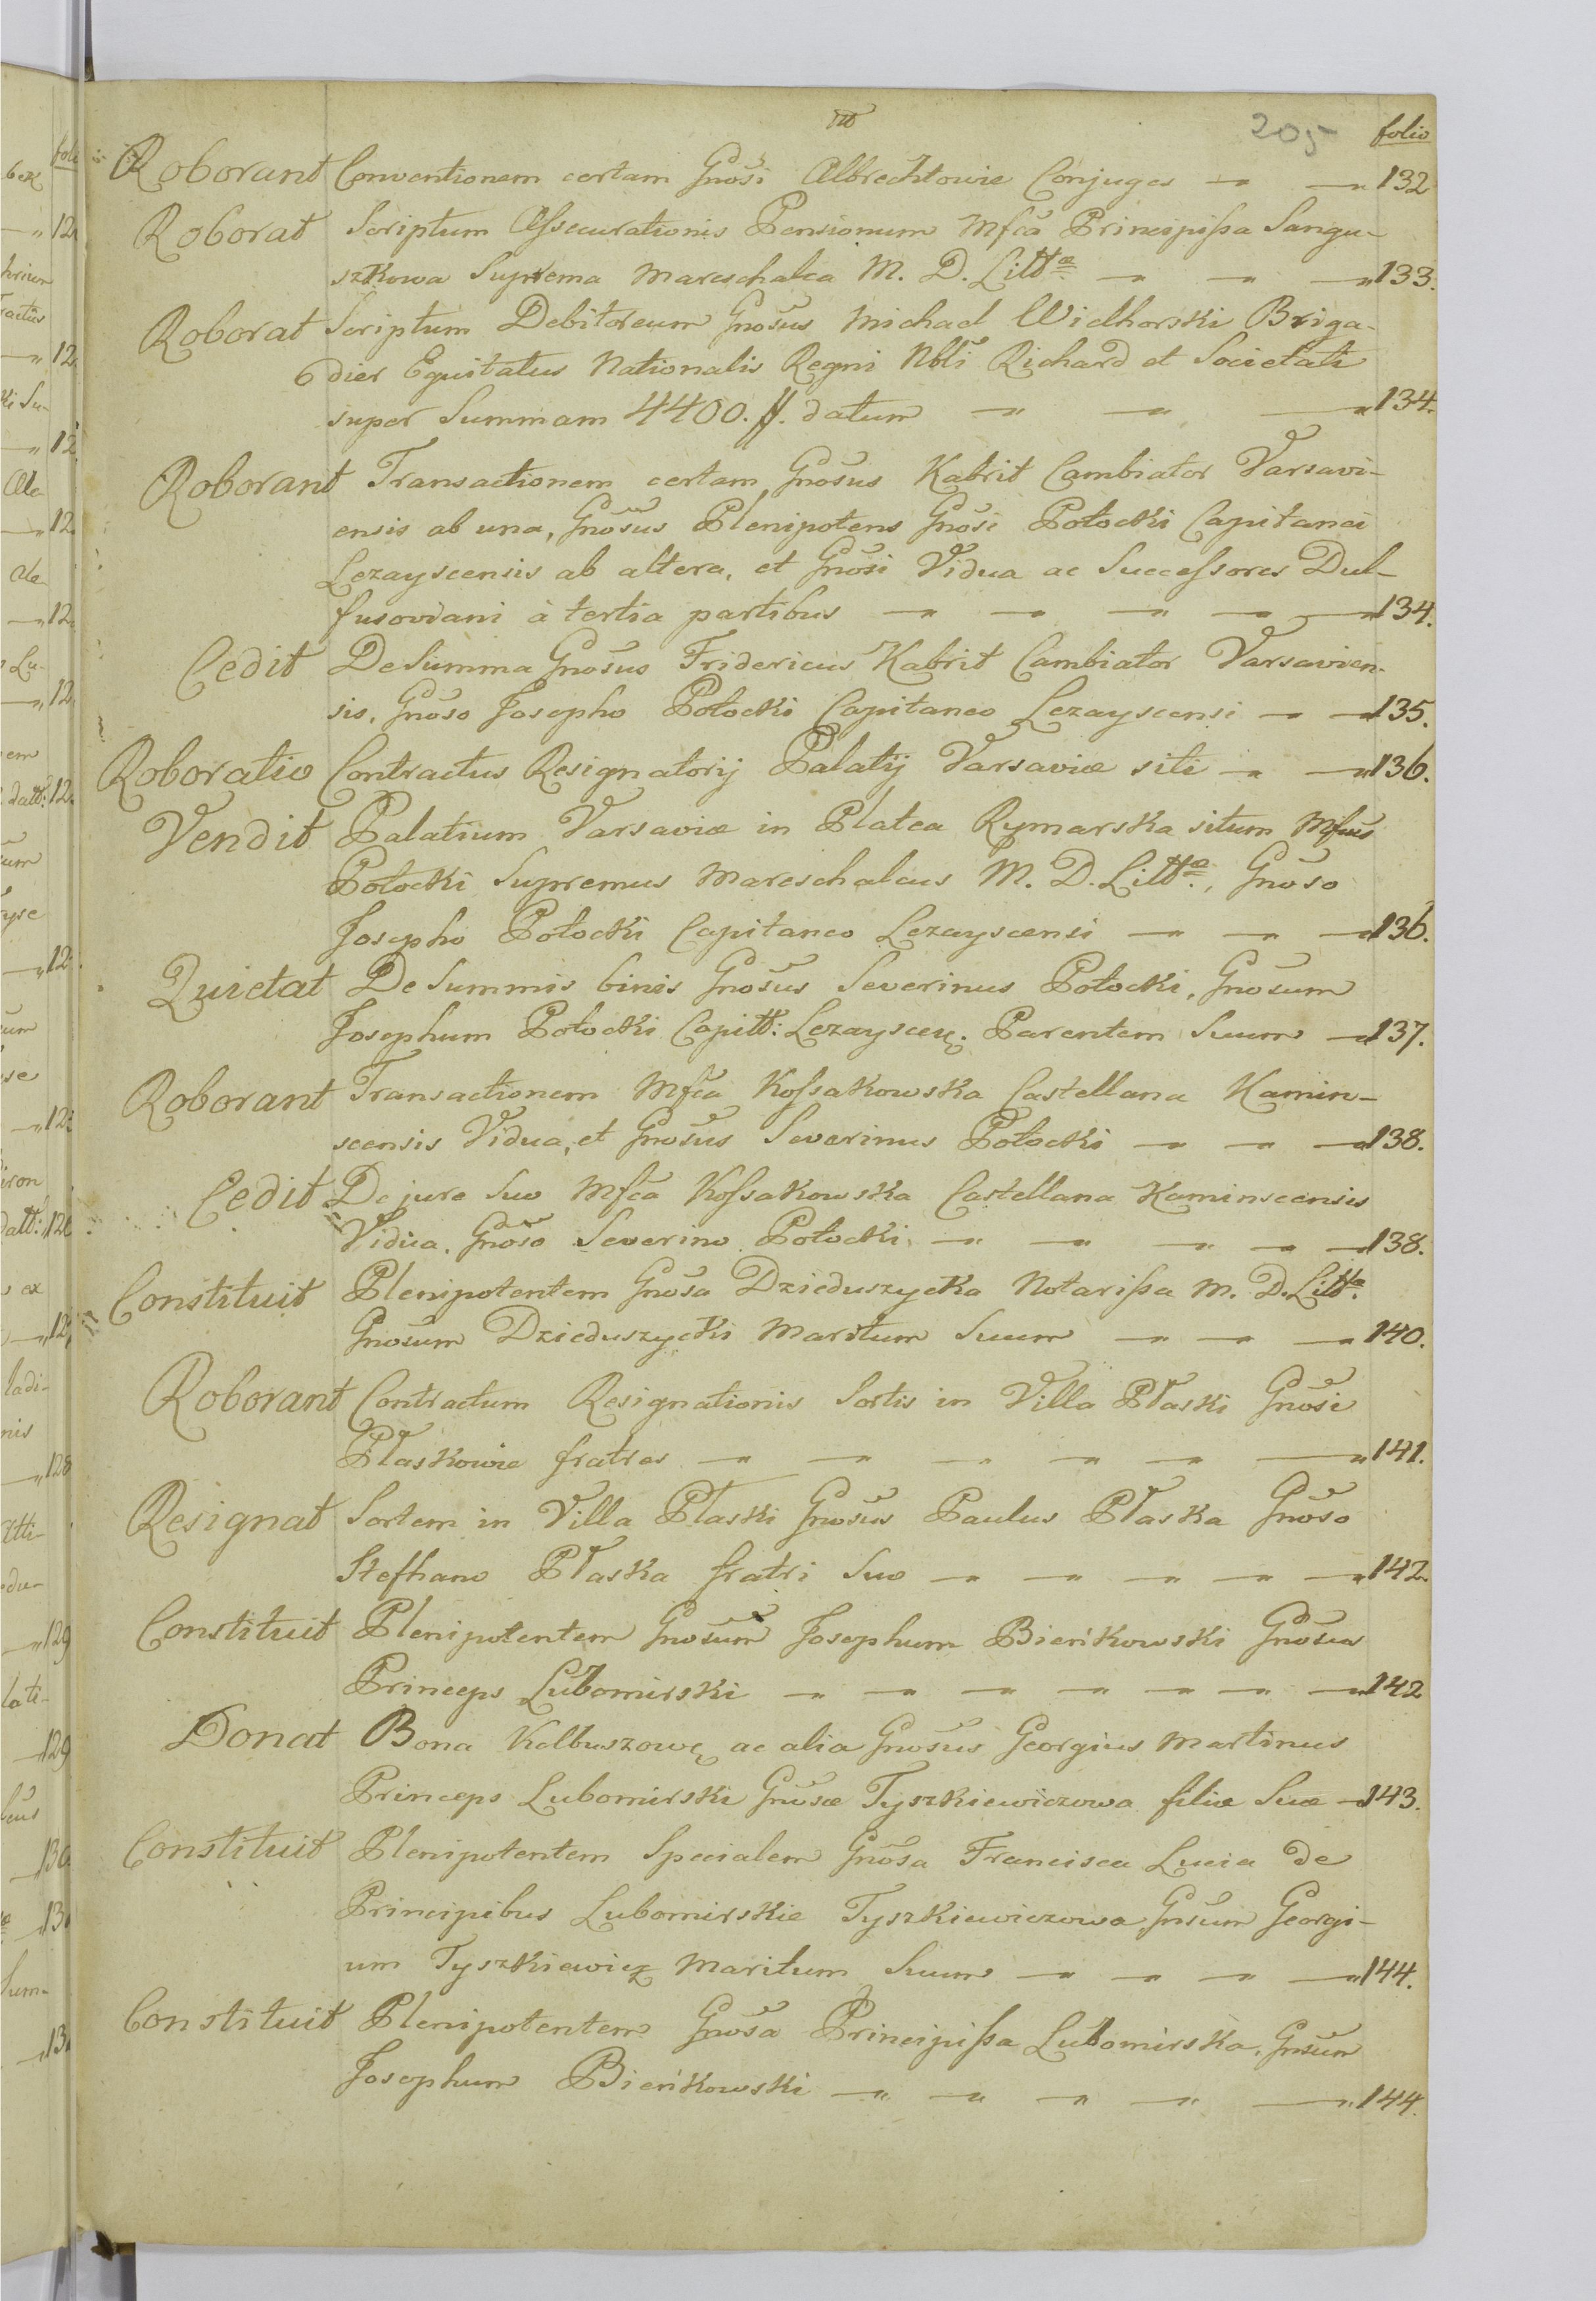 205
folio
Roborant Conventionem certam Gnosi Albrechtowie Conjuges 132
Roborat Scriptum Assecurationis Pensionum Mfca Principissa Sangu-
szkowa Suprema Mareschalca M. D. Littæ 133.
Roborat Scriptum Debitoreum Gnosus Michael Wielhorski Briga-
dier Equitatus Nationalis Regni Nbli Richard et Societati
super Summam 4400. #. datum 134.
Roborant Transactionem certam Gnosus Kabrit Cambiator Varsavi-
ensis ab una, Gnosus Plenipotens Gnosi Potocki Capitanei
Lezayscensis ab altera, et Gnosi Vidua ac Successores Dul-
fusowiani à tertia partibus 134.
Cedit De Summa Gnosus Fridericus Kabrit Cambiator Varsavien-
sis, Gnoso Josepho Potocki Capitaneo Lezayscensi 135.
Roboratio Contractus Resignatorij Palatij Varsaviæ siti 136.
Vendit Palatium Varsaviæ in Platea Rymarska situm Mfcus
Potocki Supremus Mareschalcus M. D. Littæ, Gnoso
Josepho Potocki Capitaneo Lezayscensi 136.
Quietat De Summis binis Gnosus Severinus Potocki, Gnosum
Josephum Potocki Capitt: Lezayscen. Parentem Suum 137.
Roborant Transactionem Mfca Kossakowska Castellana Kamin-
scensis Vidua, et Gnosus Severinus Potocki 138.
Cedit De jure Suo Mfca Kossakowska Castellana Kaminscensis
Vidua, Gnoso Severino Potocki 138.
Constituit Plenipotentem Gnosa Dzieduszycka Notarissa M. D. Littæ
Gnosum Dzieduszycki Maritum Suum 140.
Roborant Contractum Resignationis Sortis in Villa Płaski Gnosi
Płaskowie fratres 141.
Resignat Sortem in Villa Płaski Gnosus Paulus Płaska Gnoso
Stephano Płaska fratri Suo 142.
Constituit Plenipotentem Gnosum Josephum Bieńkowski Gnosus
Princeps Lubomirski 142
Donat Bona Kolbuszowę ac alia Gnosus Georgius Martinus
Princeps Lubomirski Gnosæ Tyszkiewiczowa filiæ Suæ 143.
Constituit Plenipotentem Specialem Gnosa Francisca Lucia de
Principibus Lubomirskie Tyszkiewiczowa Gnsum Georgi-
um Tyszkiewicz Maritum Suum 144.
Constituit Plenipotentem Gnosa Principissa Lubomirska, Gnsum
Josephum Bieńkowski 144.